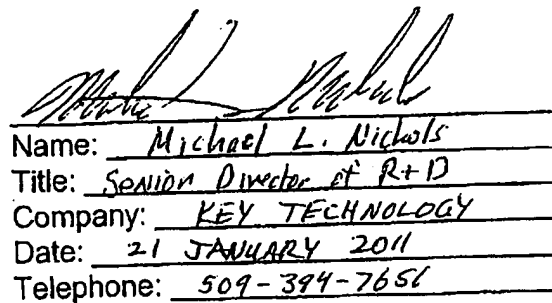 Name: Michael L. Nichols
Title: Senior Director of R+D
Company: KEY TECHNOLOGY
Date: 21 JANUARY 2011
Telephone: 509-394-7656